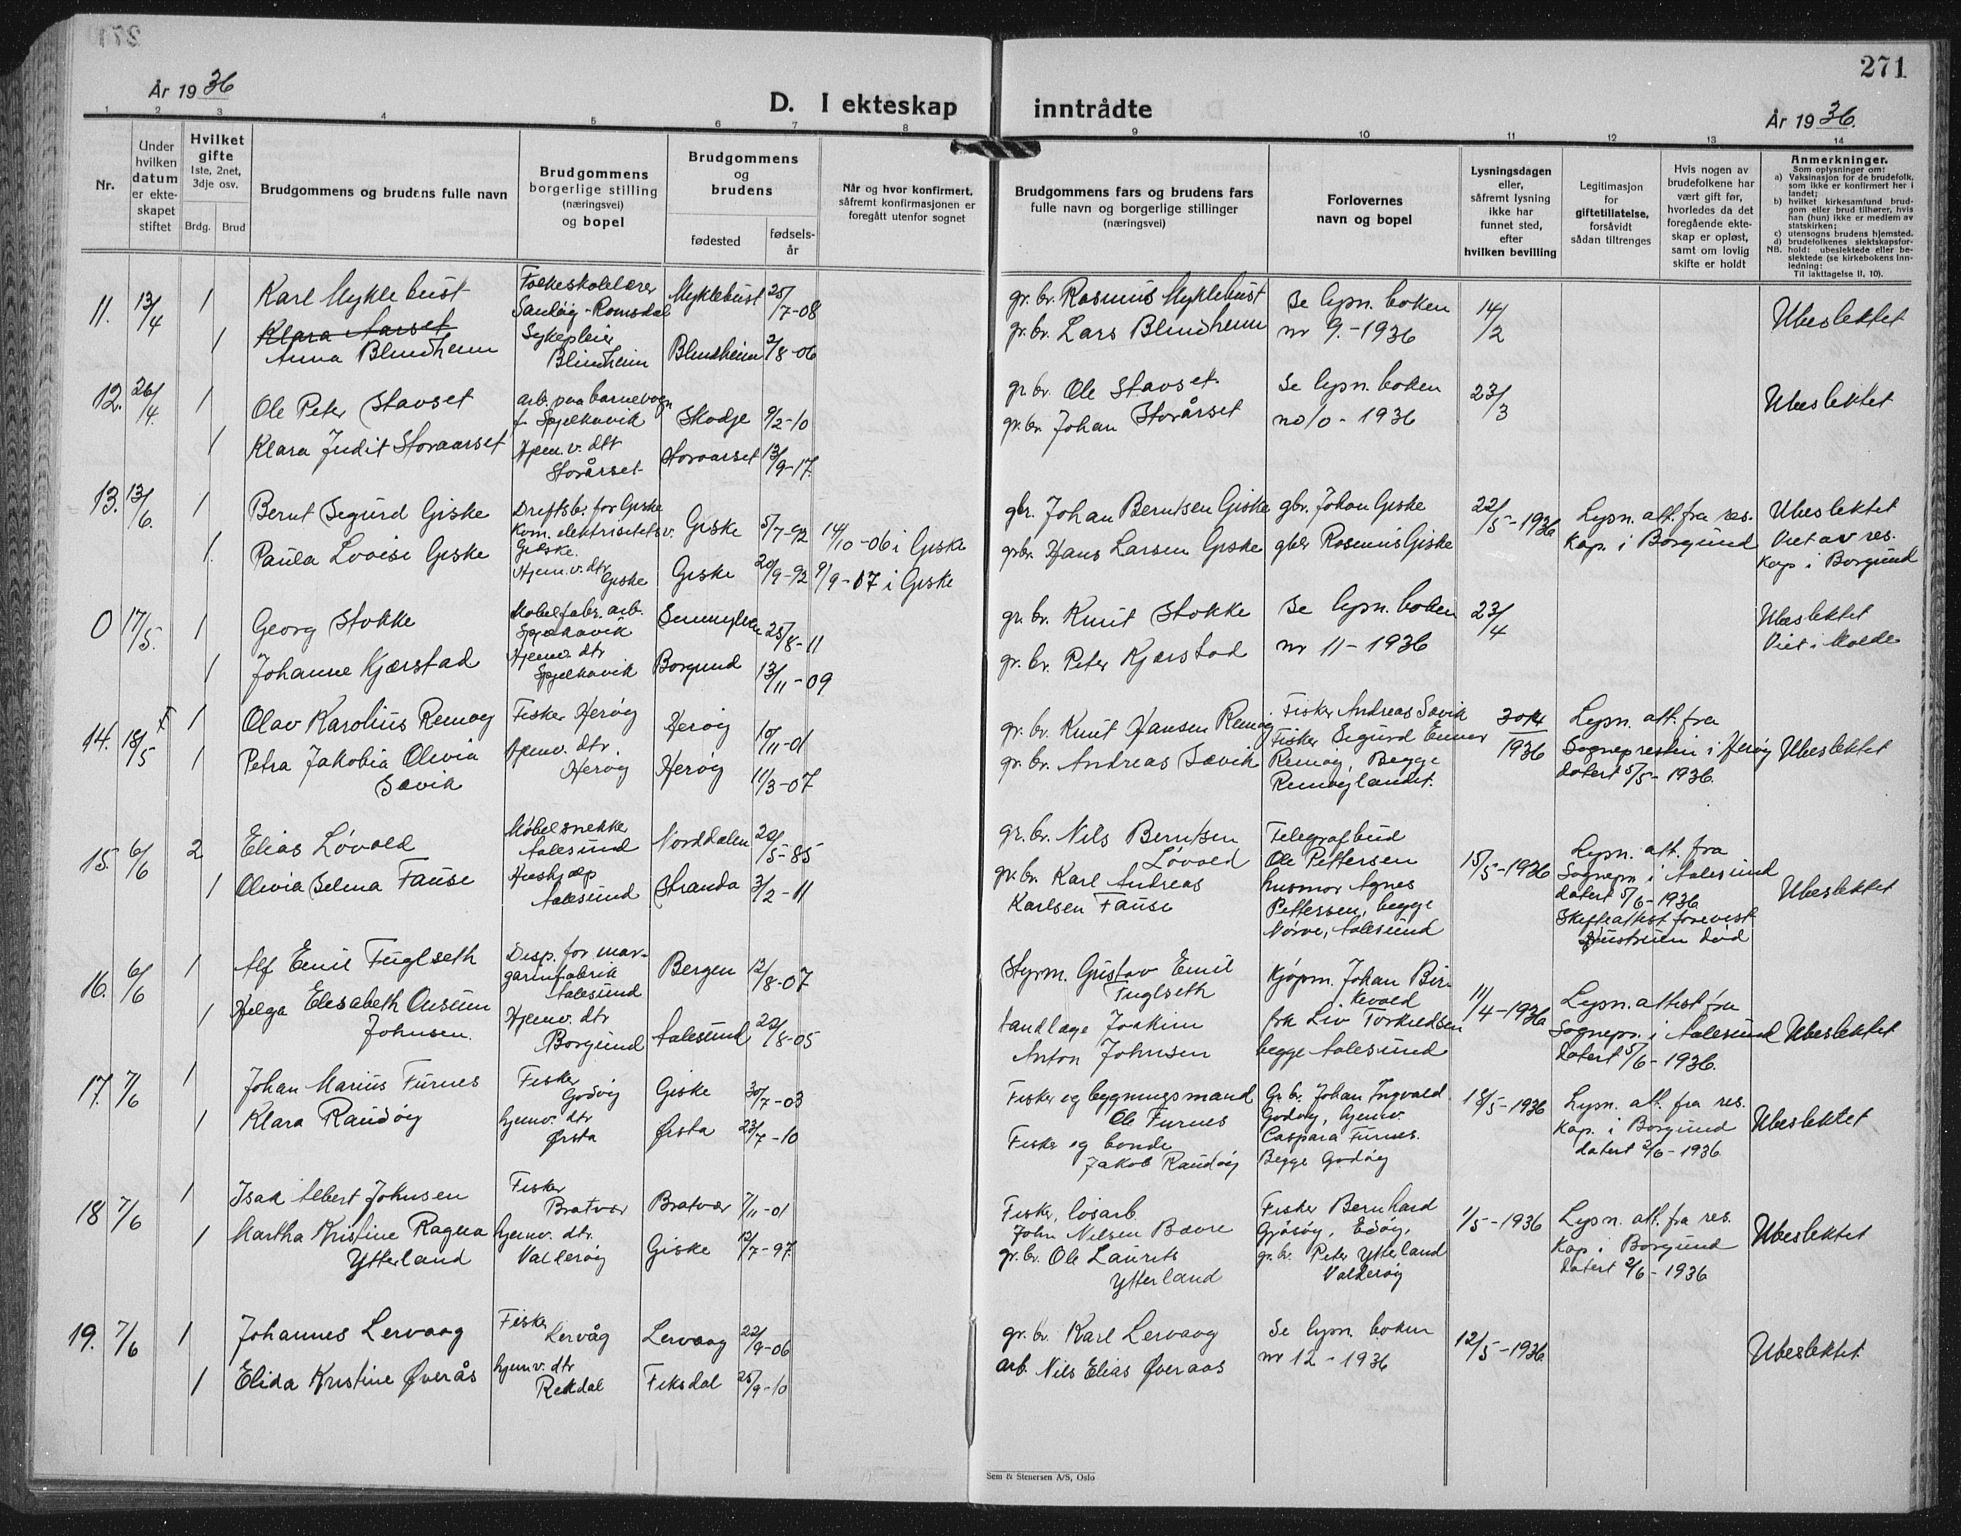 271
År 1936
D. I ekteskap inntrådte
År 1936.
1 2 3 4 5 6 7 8 9 10 11 12 13 14
Nr.
Under hvilken datum er ekteskapet stiftet
Hvilket gifte
1ste, 2net, 3dje osv.
Brdg. Brud
Brudgommens og brudens fulle navn
Brudgommens borgerlige stilling (næringsvei) og bopel
Brudgommens og brudens
fødested
fødselsår
Når og hvor konfirmert, såfremt konfirmasjonen er foregått utenfor sognet
Brudgommens fars og brudens fars fulle navn og borgerlige stillinger (næringsvei)
Forlovernes navn og bopel
Lysningsdagen eller, såfremt lysning ikke har funnet sted, efter hvilken bevilling
Legitimasjon for giftetillatelse, forsåvidt sådan tiltrenges
Hvis nogen av brudefolkene har vært gift før, hvorledes da det foregående ekteskap er opløst, samt om lovlig skifte er holdt
Anmerkninger.
Som oplysninger om:
a) Vaksinasjon for de brudefolk, som ikke er konfirmert her i landet;
b) hvilket kirkesamfund brudgom eller brud tilhører, hvis han (hun) ikke er medlem av statskirken;
c) utensogns brudens hjemsted.
d) brudefolkenes slektskapsforhold: ubeslektede eller beslektede (se kirkebokens Innledning:
NB. Til iakttagelse II, 10).
11. 13/4 1 Karl Myklebust Folkeskolelærer Sandøy-Romsdal Myklebust 25/7-08 gr. br. Rasmus Myklebust Se lysn. boken 14/2 Ubeslektet
1 Klara Aarset Anna Blindheim Sykepleier Blindheim Blindheim 2/8-06 gr. br. Lars Blindheim nr 9.-1936
12. 26/4. 1 Ole Peter Stavset arb. paa barnevogn f. Spjelkavik Skodje 9/2-10 gr. br. Ole Stavset. Se lysn. boken 23/3 Ubeslektet
1 Klara Judit Storaarset Hjem. v. dtr Storårset Storaarset 13/9-17. gr. br. Johan Storårset no 10 - 1936
13. 13/6. 1 Bernt Segurd Giske Driftsb. for Giske Kom. elektrisitetsv. Giske. Giske 5/7-92 14/10-06 i Giske gbr. Johan Berntsen Giske gbr. Johan Giske 22/5-1936 Lysn. att. fra res. Kap. i Borgund Ubeslektet Viet av res. Kap i Borgund
1. Paula Lovise Giske Hjem. v. dtr Giske Giske 20/9-92 9/9-07 i Giske gbr. Hans Larsen Giske gbr Rasmus Giske
0 17/5. 1 Georg Stokke Møbelfabr. arb. Spjelkavik Sunnylven 25/8-11 gr. br. Knut Stokke Se lysn. boken 23/4 Ubeslektet Viet i Molde
1 Johanne Kjærstad Hjemv. dtr Spjelkavik Borgund 13/11-09 gr. br. Peter Kjærstad nr 11-1936
14. 18/5 F 1 Olav Karolius Remøy Fisker Herøy Herøy 10/11-01 gr. br. Knut Hansen Remøy Fisker Andreas Sævik 30/4 1936 Lysn. att. fra Sognepresten i Herøy datert 5/5-1936. Ubeslektet
1 Petra Jakobia Olivia Sævik Hjemv. dtr. Herøy Herøy 11/3-07 gr. br. Andreas Sævik Fisker Sigurd Remøy, Begge Remøylandet.
15. 6/6 2 Elias Løvold Møbelsnekke Aalesund Norddalen 20/5-85 gr. br. Nils Berntsen Løvold Telegrafbud Ole Pettersen 15/5-1936 Lysn. att. fra Sognepr. i Aalesund datert 5/6-1936 Skifteattest forevist Hustruen død Ubeslektet
1 Olivia Selma Fause Hushjælp Aalesund Stranda 3/2-11 gr. br. Karl Andreas Karlsen Fause husmor Agnes Pettersen, begge Nørve, Aalesund
16. 6/6 1 Alf Emil Fuglseth Disp. for margarinfabrik Aalesund Bergen 12/8-07 Styrm. Gustav Emil Fuglseth Kjøpm. Johan Birkevold 11/4-1936 Lysn. attest fra Sognepr. i Aalesund datert 5/6-1936. Ubeslektet
1 Helga Elisabeth Onsum Johnsen. Hjemv. dtr Borgund Aalesund 22/8-05 tandlæge Joakim Anton Johnsen frk Liv Torkildsen begge Aalesund
17. 7/6 1 Johan Marius Furnes Fisker Godøy Giske 30/7-03 Fisker og bygningsmand Ole Furnes Gr. br. Johan Ingvald Godøy, hjemv 18/5-1936 Lysn. att. fra res. Kap. i Borgund datert 2/6-1936 Ubeslektet
1 Klara Raudøy hjemv. dtr Ørsta Ørsta 23/7-10 Fisker og bonde Jakob Raudøy Caspara Furnes. Begge Godøy
18 7/6 1 Isak Albert Johnsen Fisker Bratvær Bratvær 7/11-01 Fisker, løsarb. John Nilsen Bævre Fisker Bernhard Gjøsøy, Edøy, 1/5-1936 Lysn. att. fra res. Kap. i Borgund datert 2/6-1936 Ubeslektet
1 Martha Kristine Ragna Ytterland hjemv. dtr. Valderøy Giske 12/7-97 gr. br. Ole Laurits Ytterland gr. br. Peter Ytterland Valderøy
19. 7/6 1 Johannes Lervaag Fisker Lervåg Lervaag 22/9-06 gr. br. Karl Lervaag Se lysn. boken 12/5-1936 Ubeslektet
1 Elida Kristine Øverås hjemv. dtr Rekdal Fiksdal 25/9-10 arb. Nils Elias Øveraas nr 12-1936
Sem & Stenersen A/S, Oslo